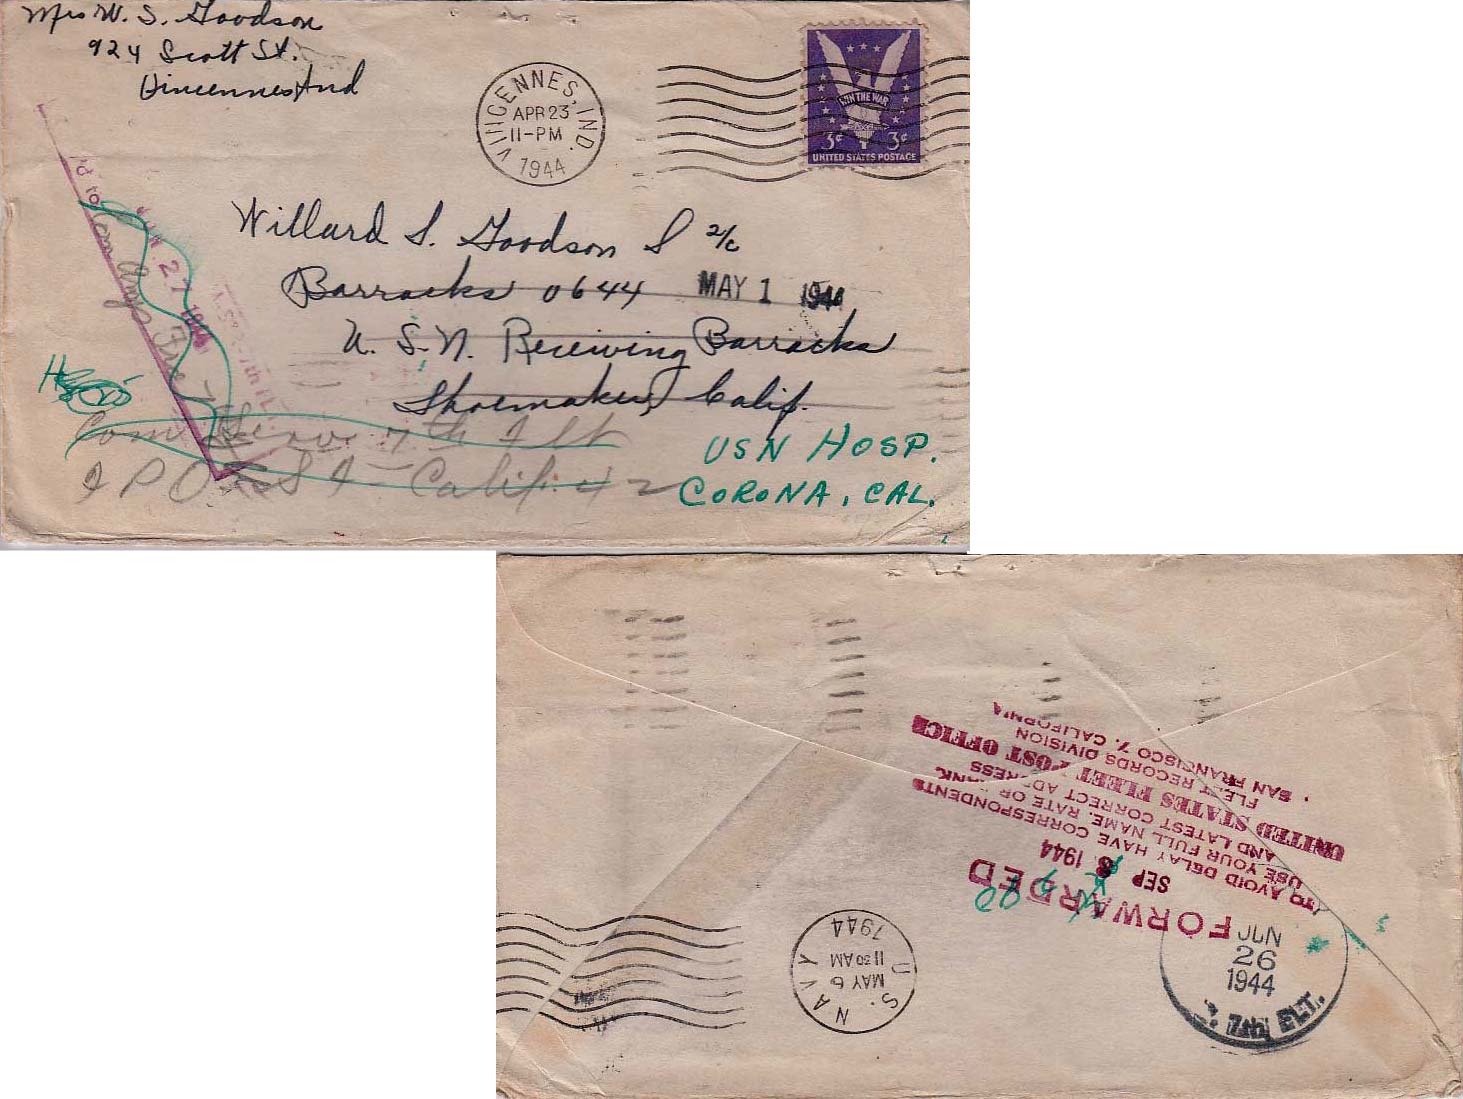 Mrs W. S. Goodson
924 Scott St.
Vincennes Ind
VINCENNES, IND.
APR 23
11-PM
1944
WIN THE WAR
3¢ 3¢
UNITED STATES POSTAGE
'd to
JUN 27 1944
7th Fl
Willard S. Goodson S 2/c
Barracks 0644
MAY 1 1944
U. S. N. Receiving Barracks
Shoemaker, Calif.
Com Serv 7th Flt
Calif.
USN HOSP.
CORONA, CAL.
SAN FRANCISCO 7, CALIFORNIA
FLEET RECORDS DIVISION
UNITED STATES FLEET POST OFFICE
AND LATEST CORRECT ADDRESS
USE YOUR FULL NAME, RATE OR RANK,
TO AVOID DELAY HAVE CORRESPONDENTS
SEP 1944
FORWARDED
U. S. NAVY
MAY 6
11 30 AM
1944
JUN
26
1944
7th FLT.